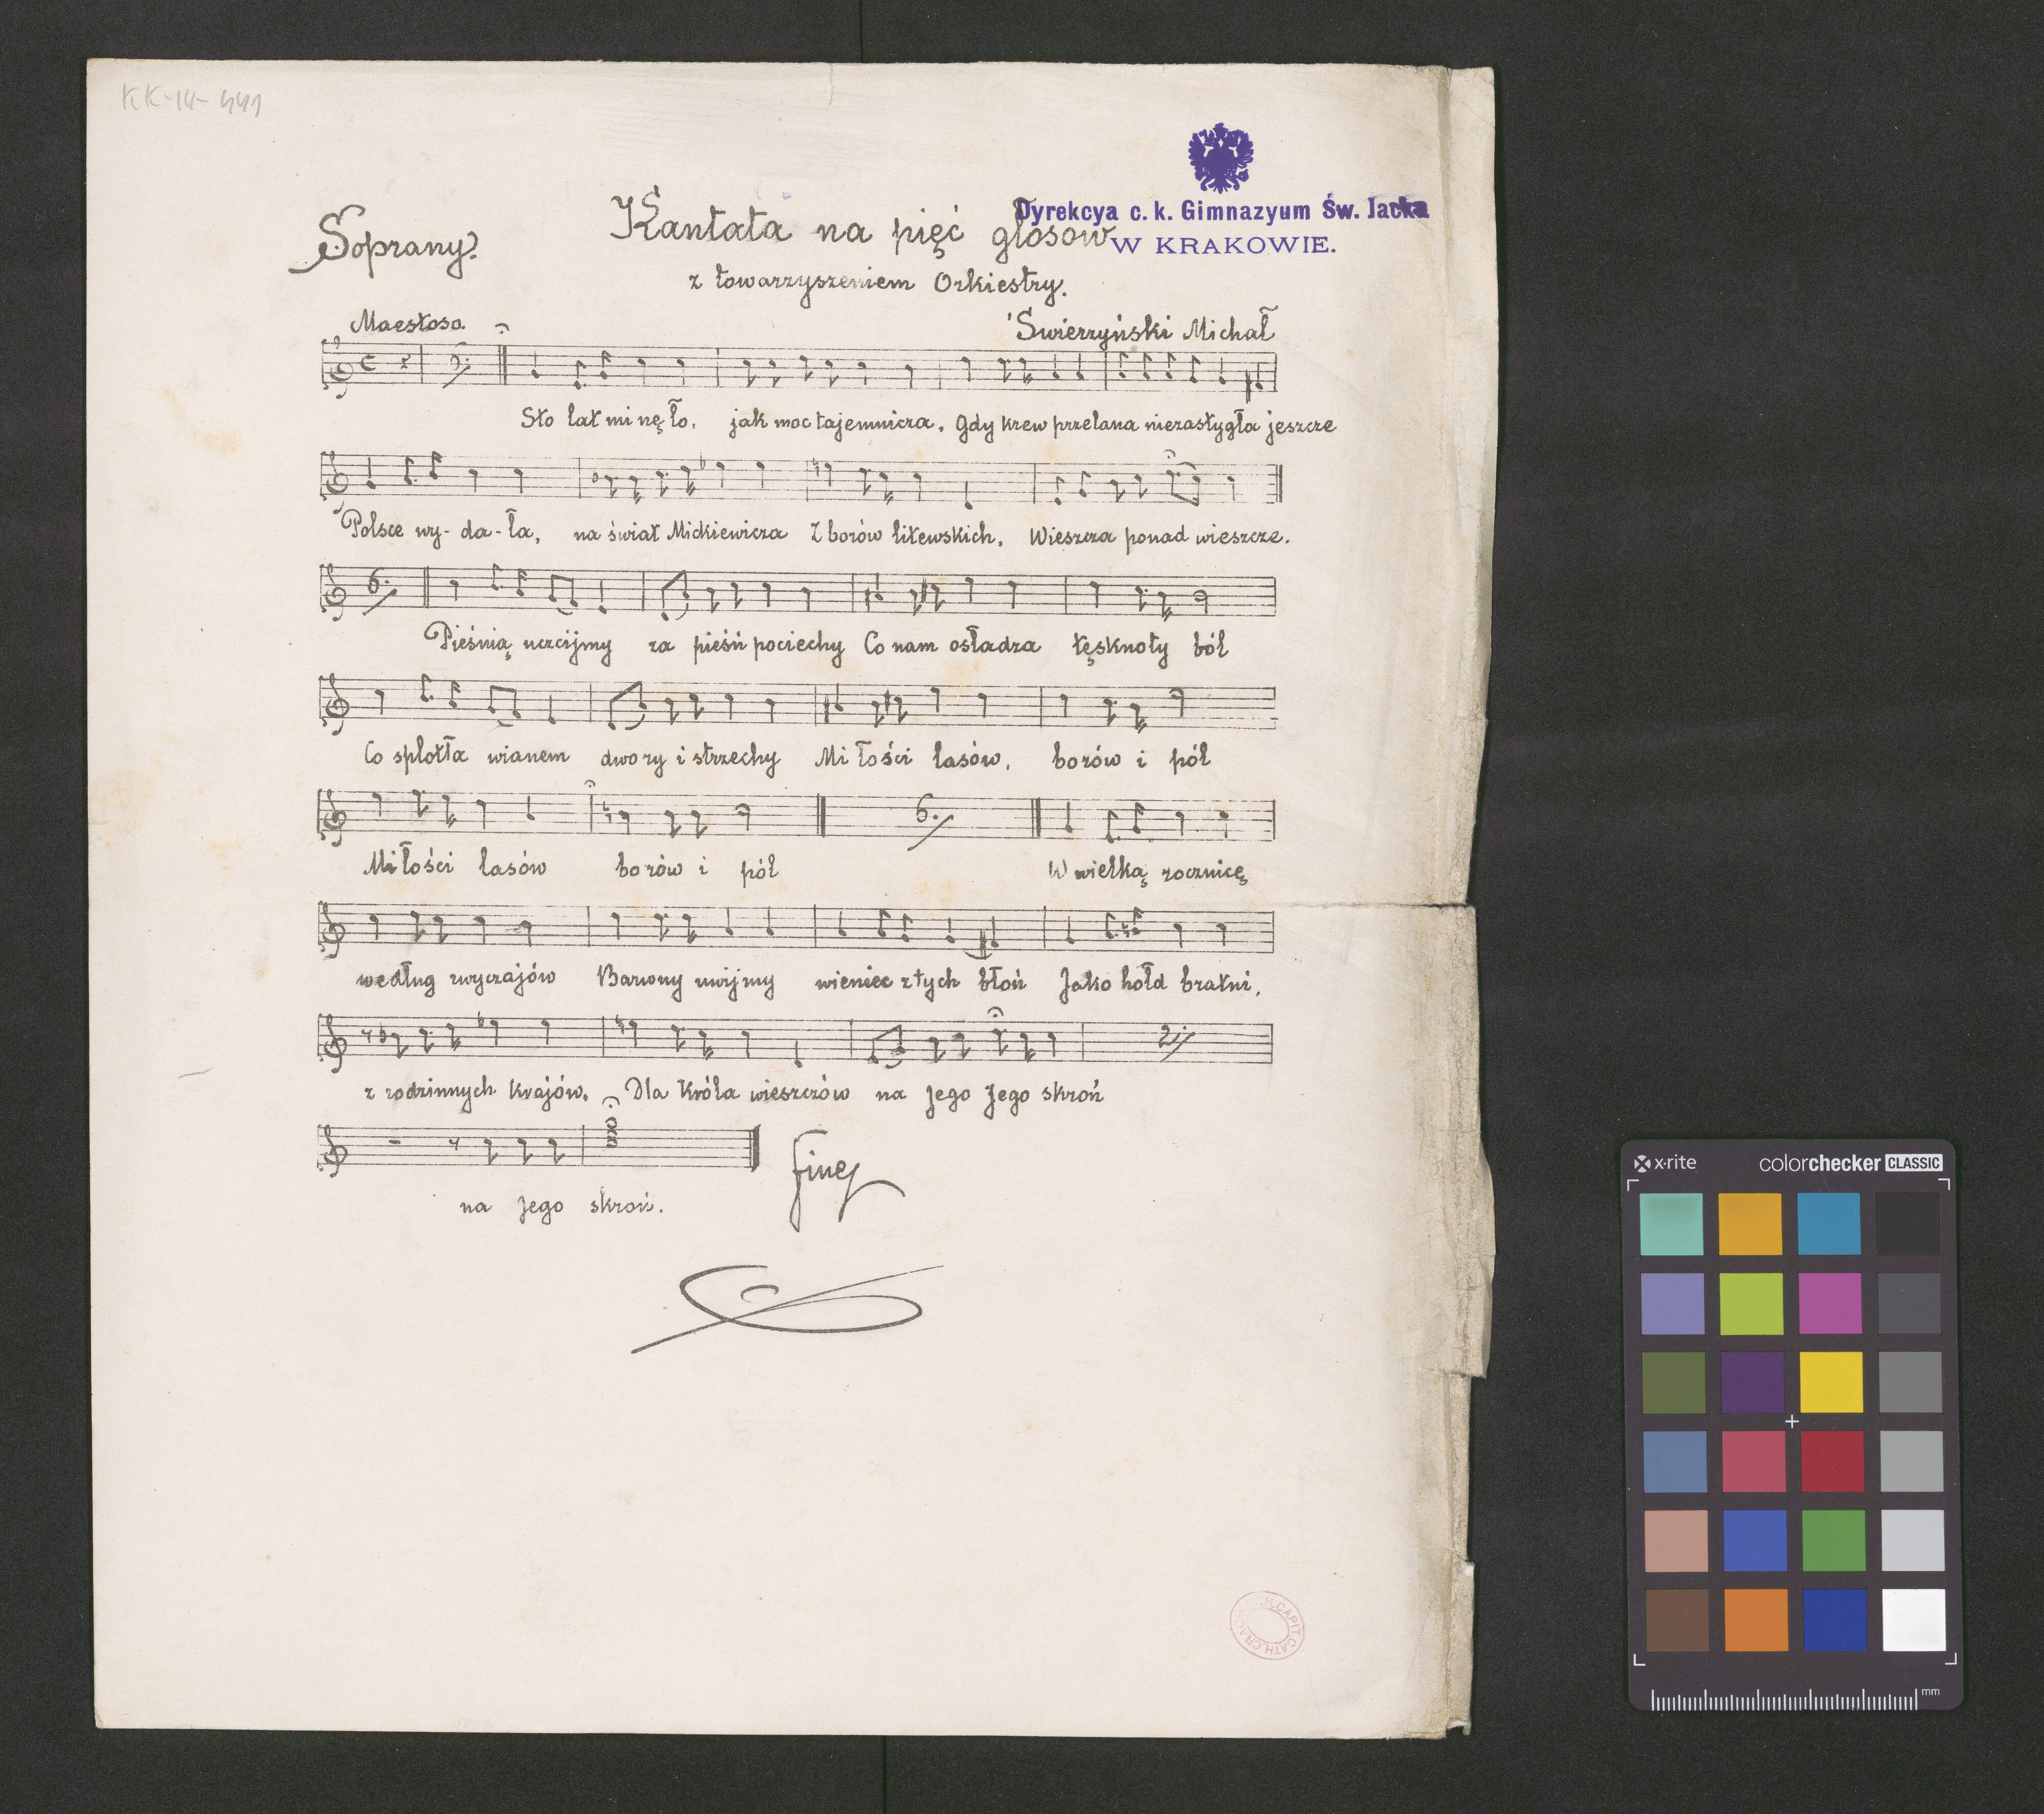 KK-14-441
Dyrekcya c. k. Gimnazyum Św. Jacka
W KRAKOWIE.
Soprany.
Kantata na pięć głosow
z towarzyszeniem Orkiestry.
Maestoso.
Świerzyński Michał
2.
Sto lat mi nę ło, jak moc tajemnicza, Gdy krew przelana niezastygła jeszcze
Polsce wy-da-ła, na świat Mickiewicza Z borów litewskich, Wieszcza ponad wieszcze.
6.
Pieśnią uczcijmy za pieśń pociechy Co nam osładza tęsknoty ból
Co splotła wianem dwory i strzechy Mi łości lasów, borów i pól
6.
Miłości lasów borów i pól W wielką rocznicę
według zwyczajów Barwny uwijmy wieniec z tych błoń Jako hołd bratni,
2
z rodzinnych krajów. Dla Króla wieszczów na Jego Jego skroń
na Jego skroń.
fine
CAPIT. CATH. CRAC
x·rite
colorchecker CLASSIC
mm